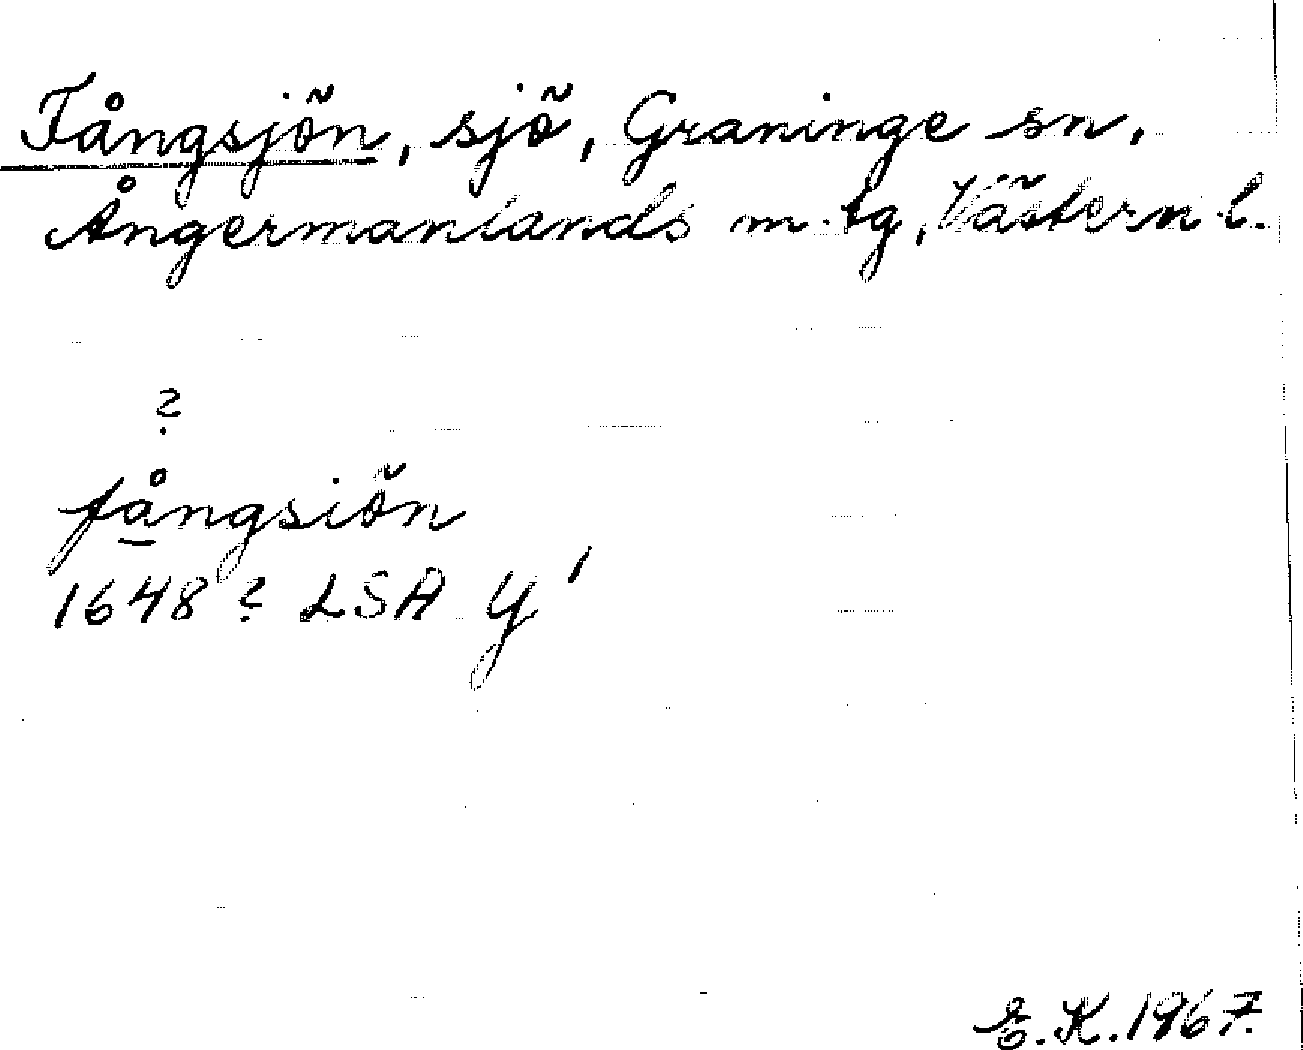 Tångsjön, sjö, Graninge sn,
Ångermanlands m. tg, Västern. l.
?
fångsiön
1648? LSA Y'
E.K. 1967.